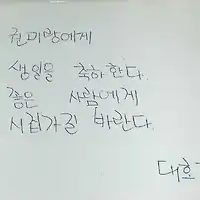 권미랑에게
생일을 축하한다.
좋은 사람에게
시집가길 바란다.
대호